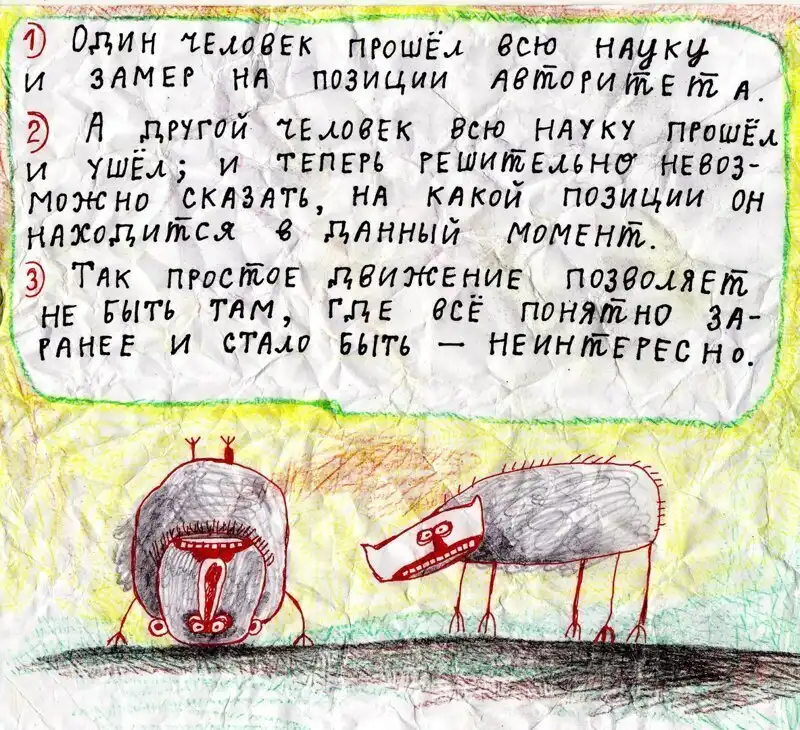 1) Один человек прошёл всю науку
и замер на позиции авторитета.
2) А другой человек всю науку прошёл
и ушёл; и теперь решительно невоз-
можно сказать, на какой позиции он
находится в данный момент.
3) Так простое движение позволяет
не быть там, где всё понятно за-
ранее и стало быть — неинтересно.